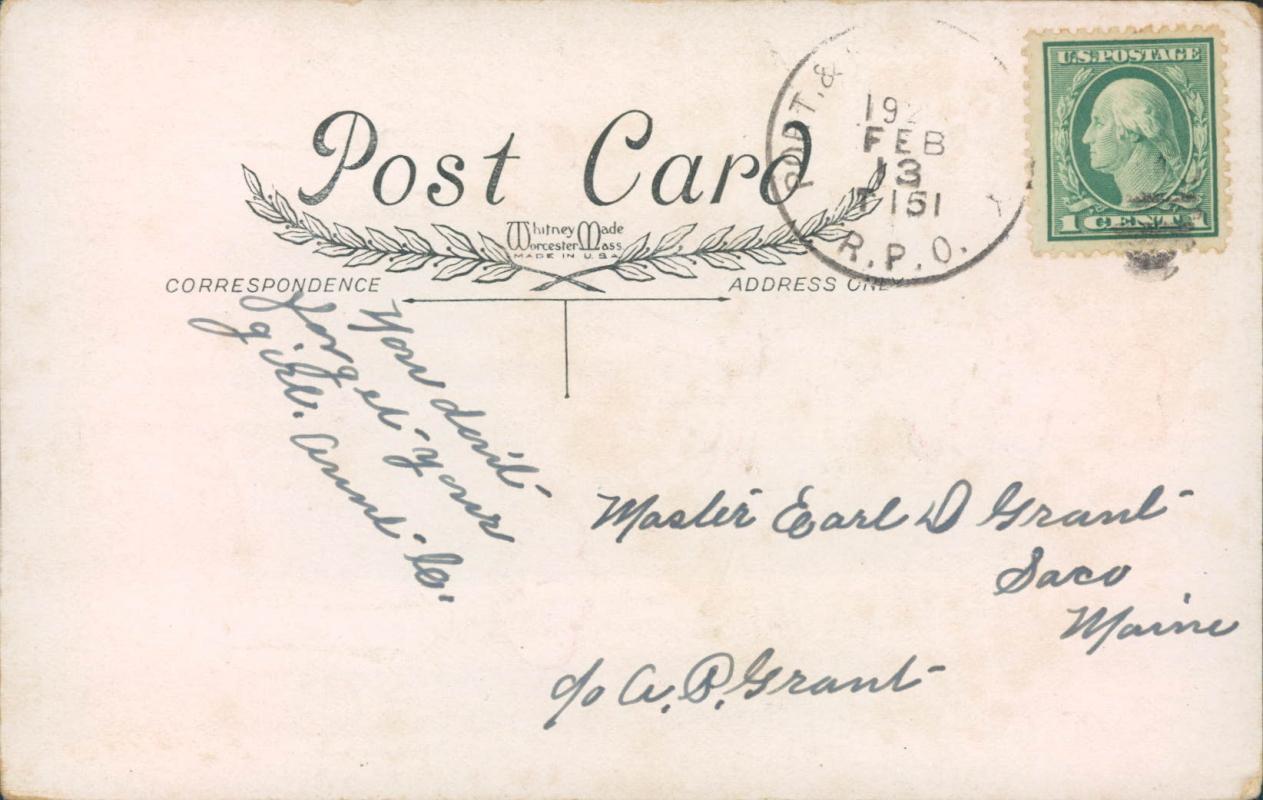 Post Card
Whitney Made
Worcester Mass
MADE IN U.S.A.
CORRESPONDENCE
ADDRESS ONLY
PORT. &
FEB
13
T 151
R.P.O.
U.S. POSTAGE
1 CENT 1
You don't
forget your
girl. Aunt
Master Earl D Grant
Saco
Maine
c/o A. P. Grant